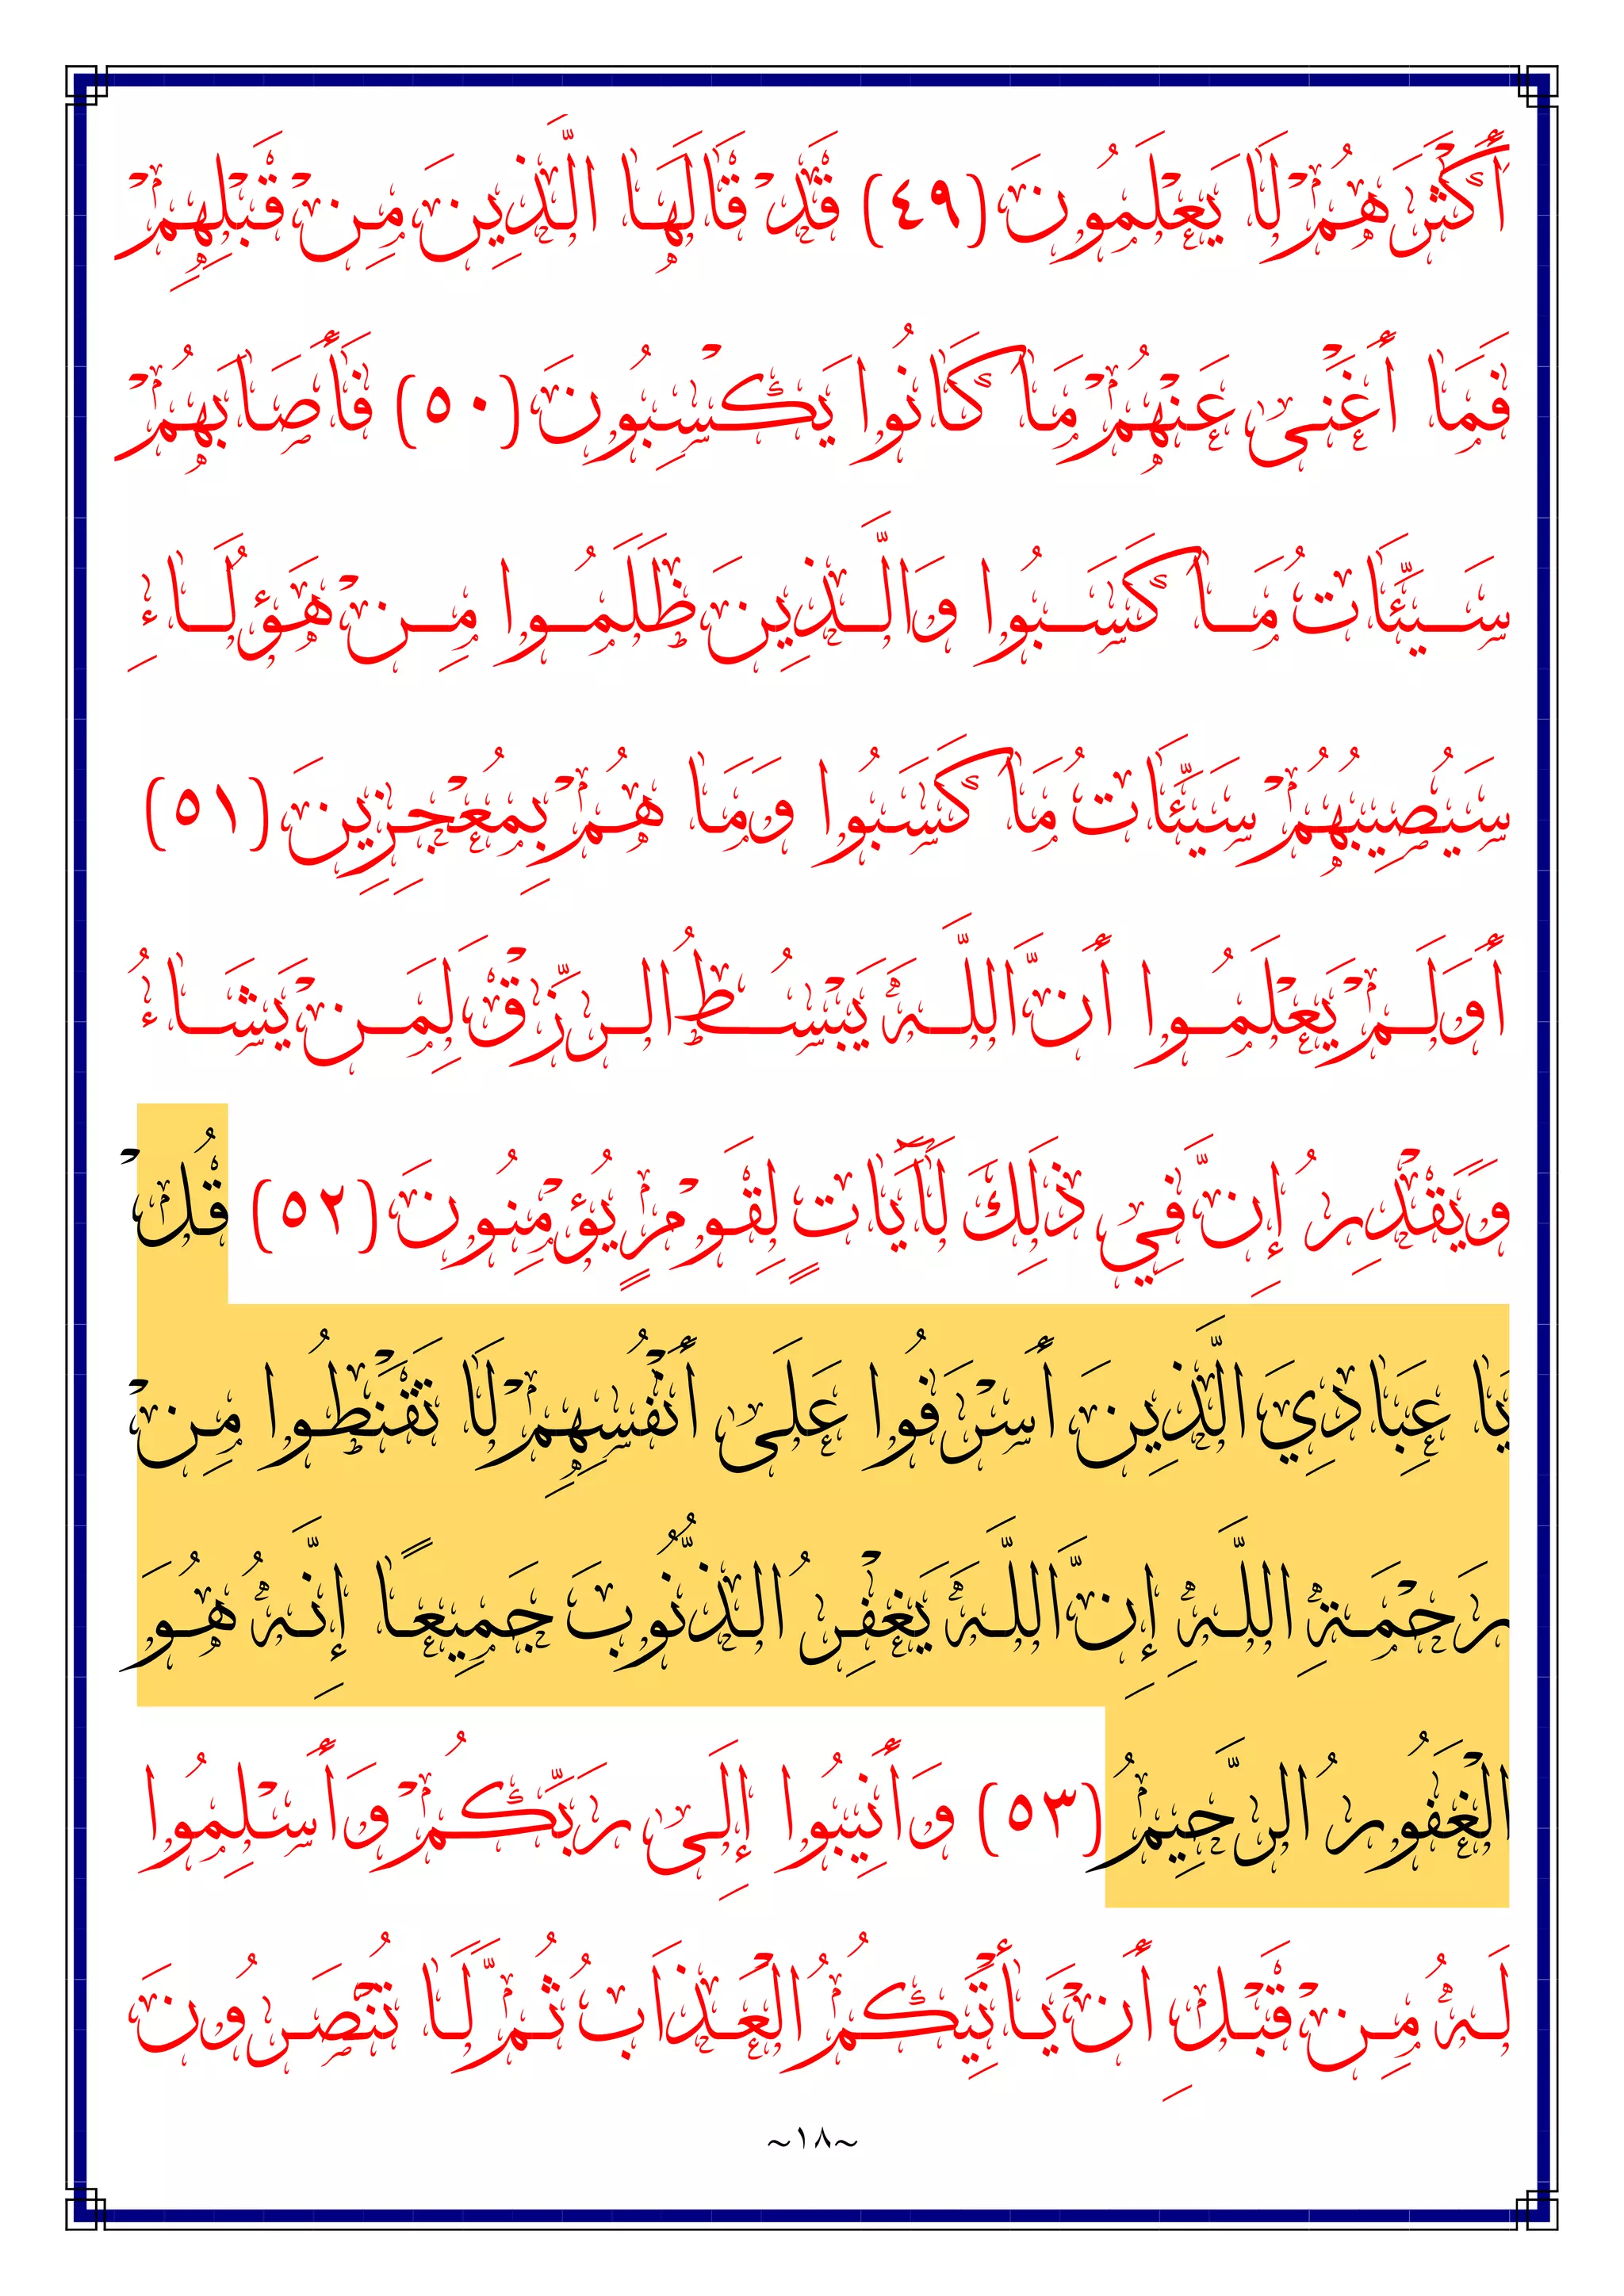 أَكْثَرَهُمْ لَا يَعْلَمُونَ (٤٩) قَدْ قَالَهَا الَّذِينَ مِنْ قَبْلِهِمْ
فَمَا أَغْنَى عَنْهُمْ مَا كَانُوا يَكْسِبُونَ (٥٠) فَأَصَابَهُمْ
سَيِّئَاتُ مَا كَسَبُوا وَالَّذِينَ ظَلَمُوا مِنْ هَؤُلَاءِ
سَيُصِيبُهُمْ سَيِّئَاتُ مَا كَسَبُوا وَمَا هُمْ بِمُعْجِزِينَ (٥١)
أَوَلَمْ يَعْلَمُوا أَنَّ اللَّهَ يَبْسُطُ الرِّزْقَ لِمَنْ يَشَاءُ
وَيَقْدِرُ إِنَّ فِي ذَلِكَ لَآَيَاتٍ لِقَوْمٍ يُؤْمِنُونَ (٥٢) قُلْ
يَا عِبَادِيَ الَّذِينَ أَسْرَفُوا عَلَى أَنْفُسِهِمْ لَا تَقْنَطُوا مِنْ
رَحْمَةِ اللَّهِ إِنَّ اللَّهَ يَغْفِرُ الذُّنُوبَ جَمِيعًا إِنَّهُ هُوَ
الْغَفُورُ الرَّحِيمُ (٥٣) وَأَنِيبُوا إِلَى رَبِّكُمْ وَأَسْلِمُوا
لَهُ مِنْ قَبْلِ أَنْ يَأْتِيَكُمُ الْعَذَابُ ثُمَّ لَا تُنْصَرُونَ
~١٨~